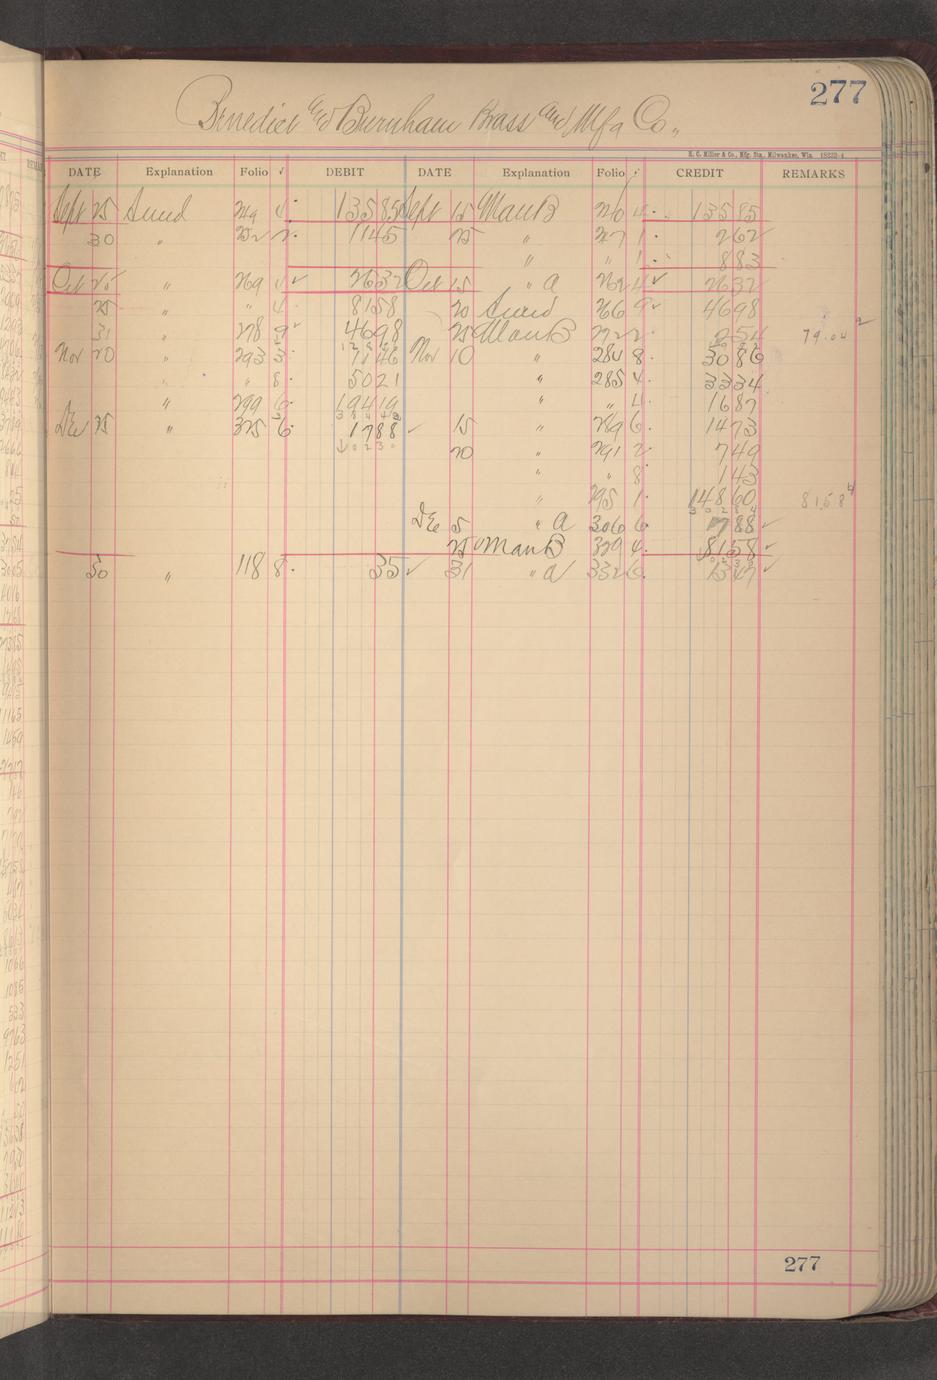 277
Benedict and Burnham Brass and Mfg Co.,
H. C. Miller & Co., Mfg. Sta., Milwaukee, Wis. 18232-4
DATE Explanation Folio √ DEBIT DATE Explanation Folio √ CREDIT REMARKS
Sept 25 Sund 249 4 13585 Sept 15 Man B 240 4 13585
30 " 252 2 1145 25 " 247 1 262
" " 1 883
Oct 25 " 269 4 ✓ 2632 Oct 15 " a 262 4 ✓ 2632
25 " " 4 8158 20 Sund 266 9 4698
31 " 278 9 4698 25 Man B 272 2 254 79.04
Nov 20 " 293 3 7146 Nov 10 " 284 8 3086
" " 8 5021 " 285 4 3334
" 299 6 19419 " " 4 1687
Dec 25 " 325 6 1788 ✓ 15 " 289 6 1473
20 " 291 2 749
" " 8 143
" 295 1 14860 81.58
Dec 5 " a 306 6 1788 ✓
25 Man B 329 4 8158 ✓
30 " 118 8 35 ✓ 31 " a 332 6 1347 ✓
277